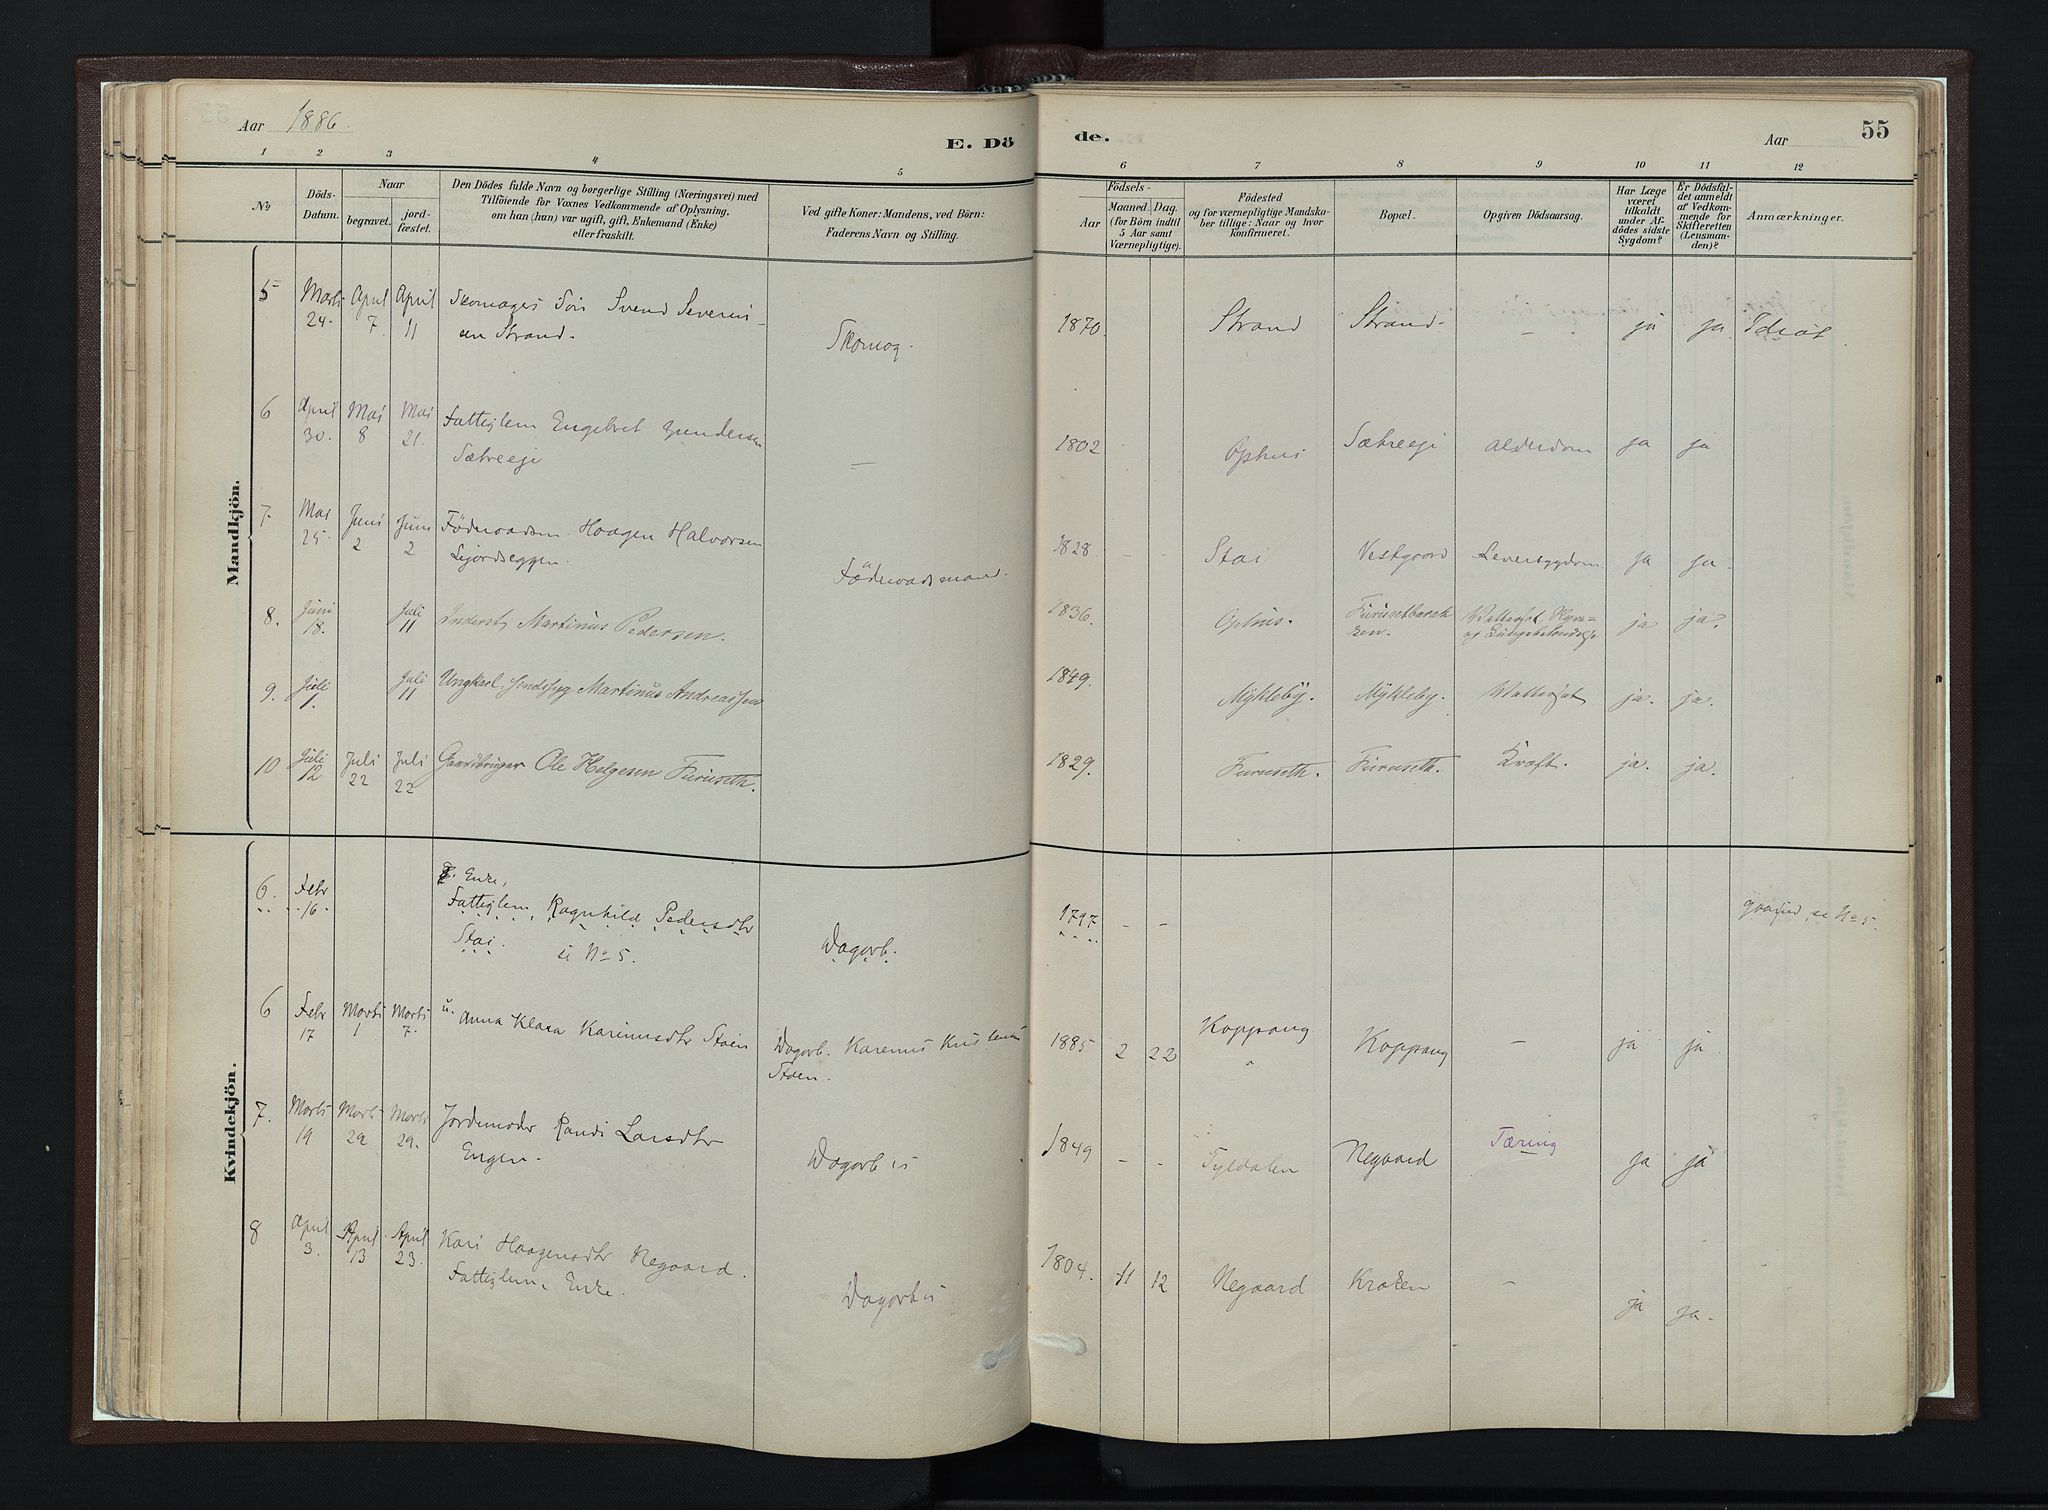 Aar 1886.
E. Döde.
Aar
55
1 2 3 4 5 6 7 8 9 10 11 12
No
Döds-Datum.
Naar
begravet.
jord-fæstet.
Den Dödes fulde Navn og borgerlige Stilling (Næringsvei) med
Tilföiende for Voxnes Vedkommende af Oplysning,
om han (hun) var ugift, gift, Enkemand (Enke)
eller fraskilt.
Ved gifte Koner: Mandens, ved Börn:
Faderens Navn og Stilling.
Födsels-
Aar
Maaned. Dag.
(for Börn indtil
5 Aar samt
Værnepligtige).
Födested
og for værnepligtige Mandska-
ber tillige: Naar og hvor
konfirmeret.
Bopæl.
Opgiven Dödsaarsag.
Har Læge
været
tilkaldt
under Af-
dödes sidste
Sygdom?
Er Dödsfal-
det anmeldt
af Vedkom-
mende for
Skifteretten
(Lensman-
den)?
Anmærkninger.
Mandkjön.
5 Marts 24. April 7 April 11 Skomages Sön Svend Severin-
en Strand.
Skomag. 1870. Strand Strand. - ja ja Idiot.
6 April 30. Mai 8 Mai 21. Fattiglem Engebret Gundersen
Sætreeje - 1802 Ophus Sætreeje Alderdom ja ja
7. Mai 25. Juni 2 Juni 2 Föderaadsm. Haagen Halvorsen
Föderaadsmand. 1828. - - Stai Vestgaard Leversygdom ja ja.
8. Juni 18. Juli 11 Inderst, Martinus Pedersen. 1836. Ophus. ja ja.
9. Juli 1. Juli 11 Ungkarl, sindssyg Martinus Andreassen 1849. Mykleby. Mykleby. Vattersot ja. ja.
10 Juli 12 Juli 22 Juli 22 Gaardbruger Ole Helgesen Furuseth. 1829. Furuseth. Furuseth. Kræft. ja. ja.
Kvindekjön.
6. Febr 16. Enke,
Fattiglem, Ragnhild Pedersdtr
Stai. se No 5. Dagarb. 1797 - - se No 5.
6 Febr 17 Marts 1 Marts 7. u. Anna Klara Karinusdtr Staen
Dagarb. Karenus Kristensen
Staen. 1885 2 22 Koppang " Koppang - ja ja
7. Marts 19 Marts 29 Marts 29. Jordemoder Randi Larsdtr
Engen. Dagarb 1849 - - Tyldalen Negaard Tæring ja ja
8 April 3. April 13 April 23. Kari Haagensdtr Negaard.
Fattiglem, Enke. Dagarb 1804. 11 12 Negaard Kroken - ja ja.